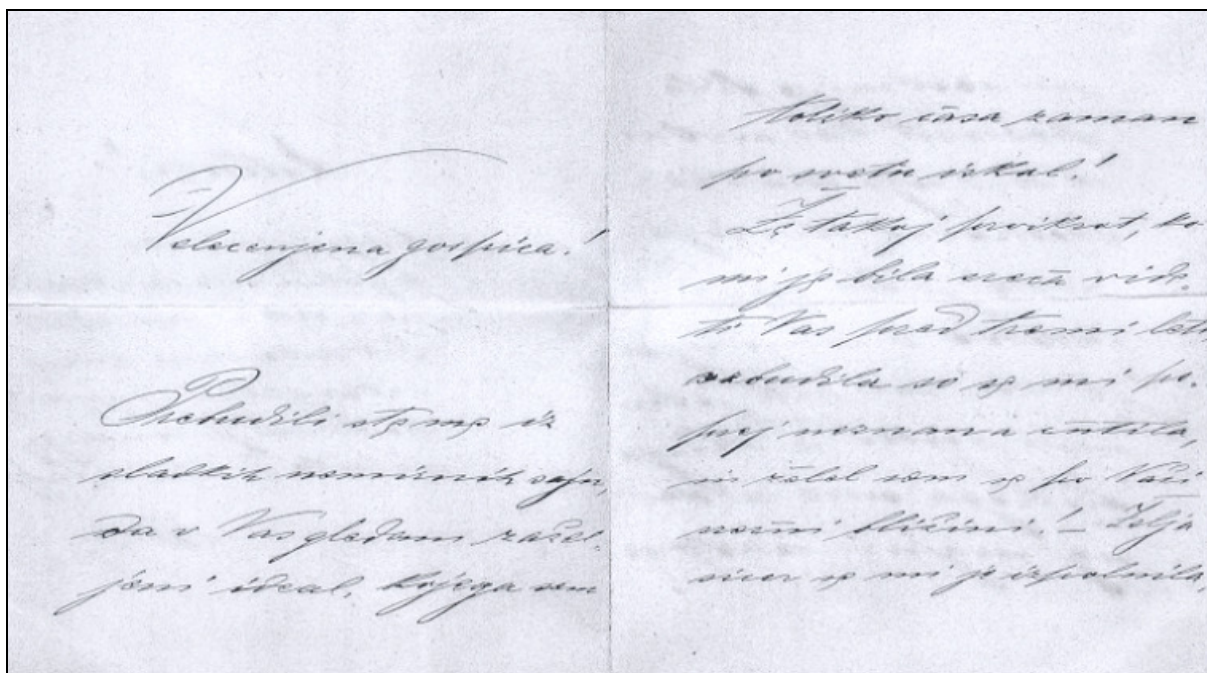 Velecenjena gospica!
Prebudili ste me iz
sladkih nemirnih sanj,
da v Vas gledam zažel-
jeni ideal, kojega sem
toliko časa zaman
po svetu iskal!
Že takoj prvikrat, ko
mi je bila sreča vide-
ti Vas pred tremi leti
vzbudila so se mi po-
prej neznana čutila,
in želel sem se po Vaši
nežni bližini! – Želja
sicer se mi je izpolnila,